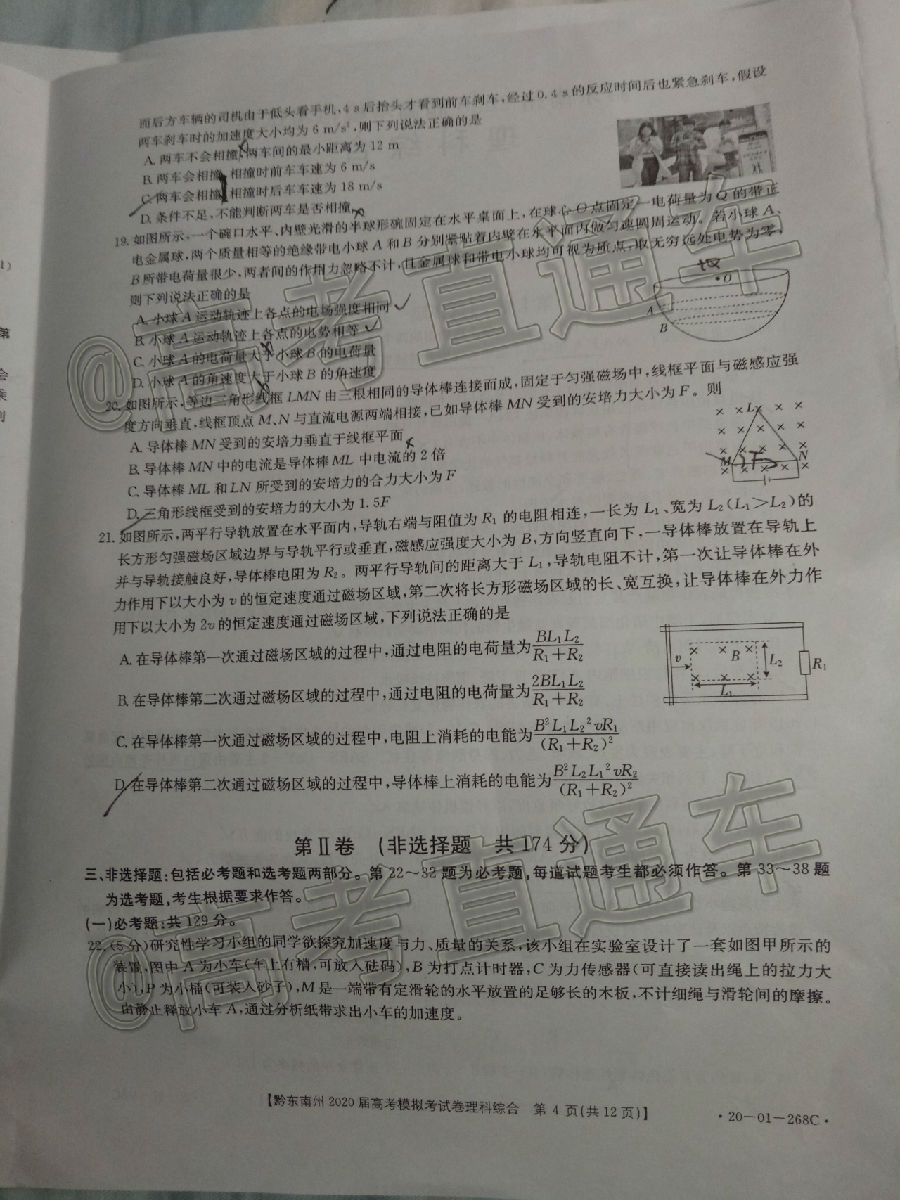 而后方车辆的司机由于低头看手机,4 s后抬头才看到前车刹车,经过0.4 s的反应时间后也紧急刹车,假设
两车刹车时的加速度大小均为6 m/s²,则下列说法正确的是
A.两车不会相撞,两车间的最小距离为12 m
B.两车会相撞,相撞时前车车速为6 m/s
C.两车会相撞,相撞时后车车速为18 m/s
D.条件不足,不能判断两车是否相撞
19.如图所示,一个碗口水平,内壁光滑的半球形碗固定在水平桌面上,在球心O点固定一电荷量为Q的带正
电金属球,两个质量相等的绝缘带电小球A和B分别紧贴着内壁在水平面内做匀速圆周运动。若小球A、
B所带电荷量很少,两者间的作用力忽略不计,且金属球和带电小球均可视为质点,取无穷远处电势为零,
则下列说法正确的是
A.小球A运动轨迹上各点的电场强度相同
B.小球A运动轨迹上各点的电势相等
C.小球A的电荷量大于小球B的电荷量
D.小球A的角速度大于小球B的角速度
O
A
B
20.如图所示,等边三角形线框LMN由三根相同的导体棒连接而成,固定于匀强磁场中,线框平面与磁感应强
度方向垂直,线框顶点M、N与直流电源两端相接,已如导体棒MN受到的安培力大小为F。则
A.导体棒MN受到的安培力垂直于线框平面
B.导体棒MN中的电流是导体棒ML中电流的2倍
C.导体棒ML和LN所受到的安培力的合力大小为F
D.三角形线框受到的安培力的大小为1.5F
L
M
N
21.如图所示,两平行导轨放置在水平面内,导轨右端与阻值为R₁的电阻相连,一长为L₁、宽为L₂(L₁>L₂)的
长方形匀强磁场区域边界与导轨平行或垂直,磁感应强度大小为B,方向竖直向下,一导体棒放置在导轨上
并与导轨接触良好,导体棒电阻为R₂。两平行导轨间的距离大于L₁,导轨电阻不计,第一次让导体棒在外
力作用下以大小为v的恒定速度通过磁场区域,第二次将长方形磁场区域的长、宽互换,让导体棒在外力作
用下以大小为2v的恒定速度通过磁场区域,下列说法正确的是
A.在导体棒第一次通过磁场区域的过程中,通过电阻的电荷量为BL₁L₂/(R₁+R₂)
B.在导体棒第二次通过磁场区域的过程中,通过电阻的电荷量为2BL₁L₂/(R₁+R₂)
C.在导体棒第一次通过磁场区域的过程中,电阻上消耗的电能为B²L₁L₂²vR₁/(R₁+R₂)²
D.在导体棒第二次通过磁场区域的过程中,导体棒上消耗的电能为B²L₂L₁²vR₂/(R₁+R₂)²
v
B
L₂
L₁
R₁
第Ⅱ卷 (非选择题 共174分)
三、非选择题:包括必考题和选考题两部分。第22~32题为必考题,每道试题考生都必须作答。第33~38题
为选考题,考生根据要求作答。
(一)必考题:共129分。
22.(5分)研究性学习小组的同学欲探究加速度与力、质量的关系,该小组在实验室设计了一套如图甲所示的
装置,图中A为小车(车上有槽,可放入砝码),B为打点计时器,C为力传感器(可直接读出绳上的拉力大
小),P为小桶(可装入砂子),M是一端带有定滑轮的水平放置的足够长的木板,不计细绳与滑轮间的摩擦。
由静止释放小车A,通过分析纸带求出小车的加速度。
【黔东南州2020届高考模拟考试卷理科综合 第4页(共12页)】
·20-01-268C·
@高考直通车
@高考直通车